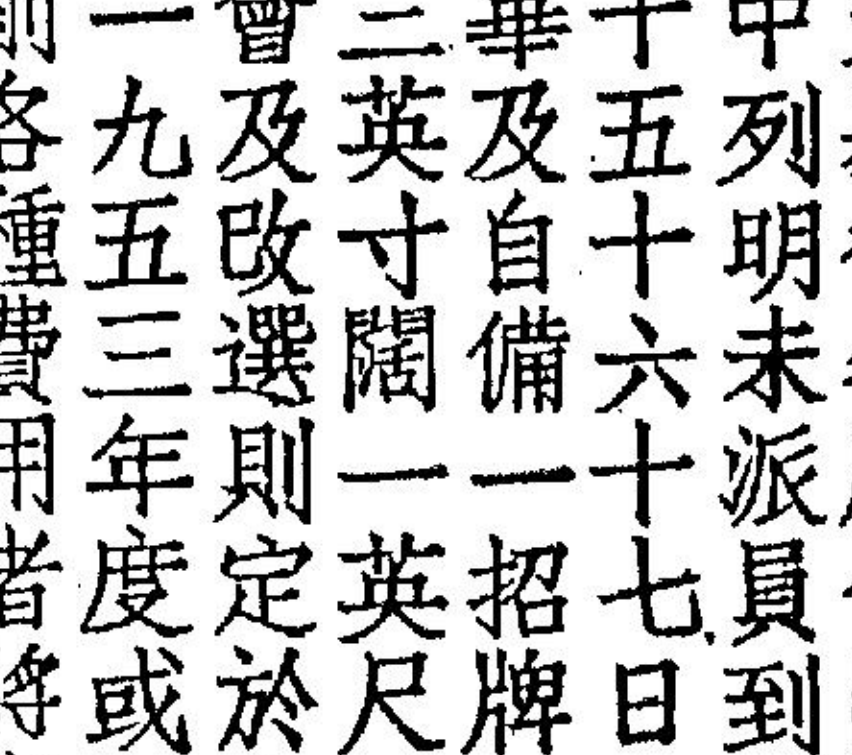 中列明未派員到
十五十六十七日
華及自備一招牌
三英寸闊一英尺
會及改選則定於
一九五三年度或
前各種費用者將